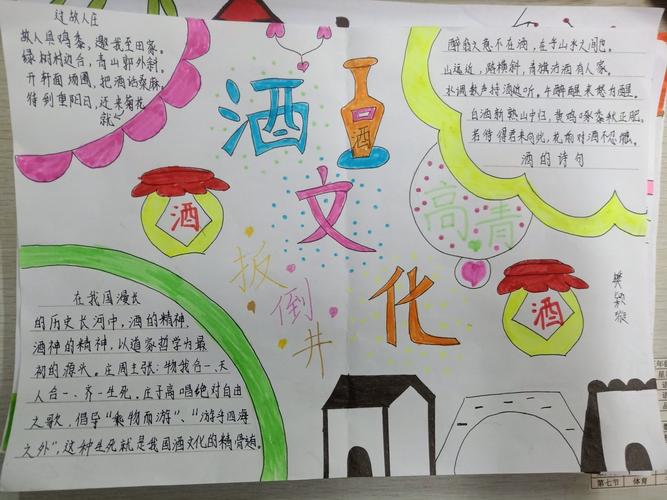 过故人庄
故人具鸡黍,邀我至田家。
绿树村边合,青山郭外斜。
开轩面场圃,把酒话桑麻。
待到重阳日,还来菊花
就
醉翁之意不在酒,在乎山水之间也。
山远近,路横斜,青旗沽酒有人家。
水调数声持酒听,午醉醒来愁为醒。
白酒新熟山中归,黄鸡啄黍秋正肥。
若待得君来向此,花前对酒不忍触。
酒的诗句
酒
酒
文
化
高青
扳倒井
酒
酒
在我国漫长
的历史长河中,酒的精神,
酒神的精神,以道家哲学为最
初的源头。庄周主张:物我合一、天
人合一、齐一生死。庄子高唱绝对自由
之歌,倡导“乘物而游”、“游乎四海
之外”,这种生死就是我国酒文化的精骨随。
第七节 体育